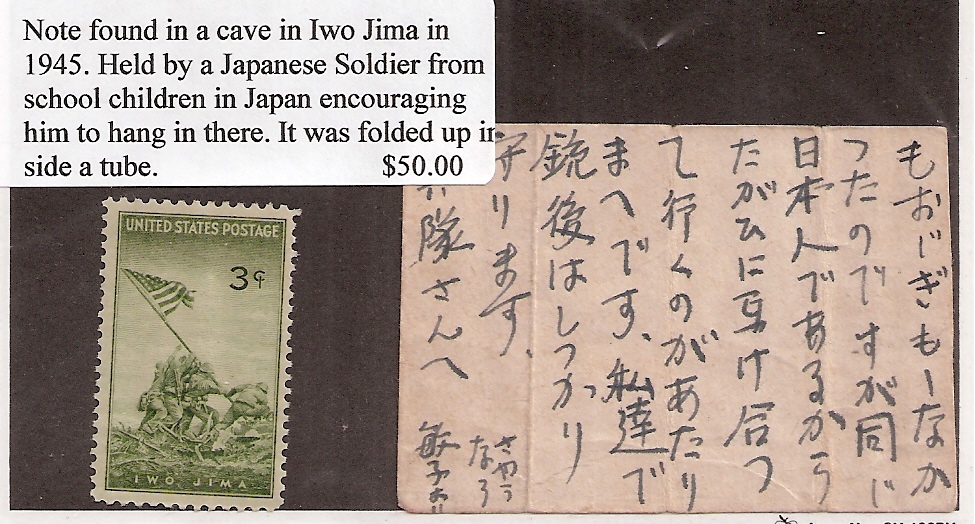 Note found in a cave in Iwo Jima in
1945. Held by a Japanese Soldier from
school children in Japan encouraging
him to hang in there. It was folded up in
side a tube. $50.00
UNITED STATES POSTAGE
3¢
IWO JIMA
もおじぎもしなか
つたのですが同じ
日本人であるから
たがひに互け合つ
て行くのがあたり
まへです、私達で
銃後はしつかり
守ります、
さやう
なら
隊さんへ 敏子より